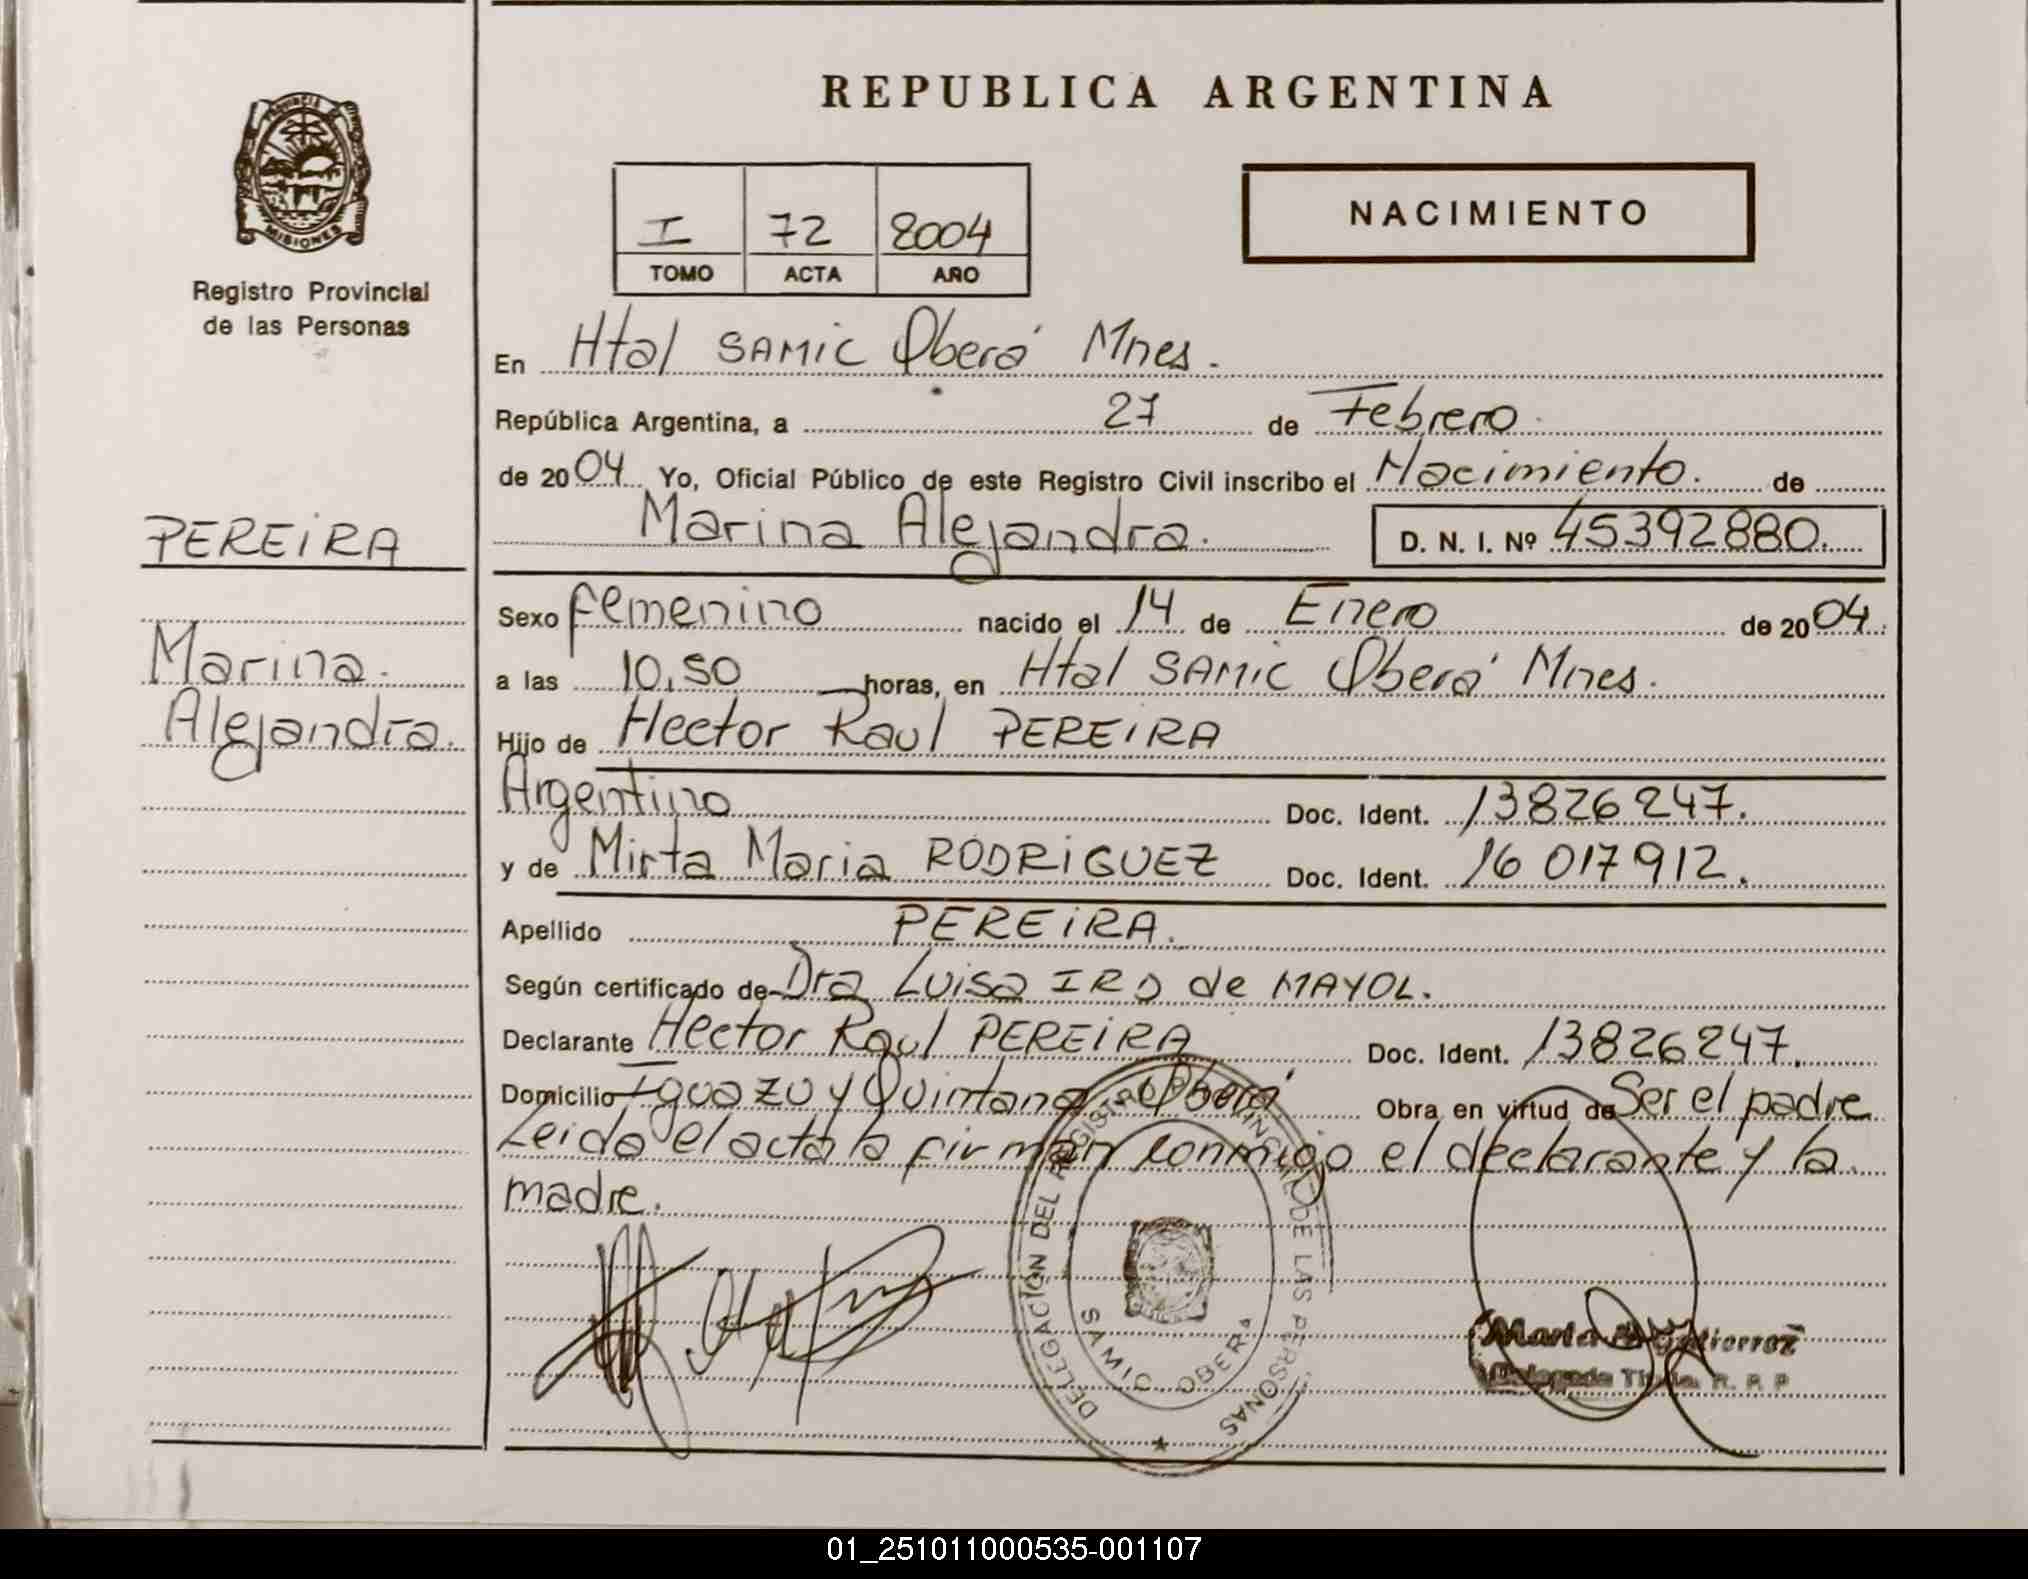 REPUBLICA ARGENTINA
PROVINCIA DE
MISIONES
Registro Provincial
de las Personas
I 72 2004
TOMO ACTA AÑO
NACIMIENTO
En Htal SAMIC Oberá Mnes.
República Argentina, a 27 de Febrero.
de 2004 Yo, Oficial Público de este Registro Civil inscribo el Nacimiento. de
Marina Alejandra. D. N. I. Nº 45392880.
PEREIRA
Marina.
Alejandra.
Sexo femenino nacido el 14 de Enero de 2004.
a las 10,50 horas, en Htal SAMIC Oberá Mnes.
Hijo de Hector Raul PEREIRA
Argentino Doc. Ident. 13826247.
y de Mirta Maria RODRIGUEZ Doc. Ident. 16 017912.
Apellido PEREIRA.
Según certificado de Dra Luisa de MAYOL.
Declarante Hector Raul PEREIRA Doc. Ident. 13826247.
Domicilio Iguazu y Quintana Oberá Obra en virtud de Ser el padre
Leida el acta la firman conmigo el declarante y la
madre.
DELEGACIÓN DEL REGISTRO PROVINCIAL DE LAS PERSONAS
SAMIC OBERA
Gutierrez
R. P. P
01_251011000535-001107